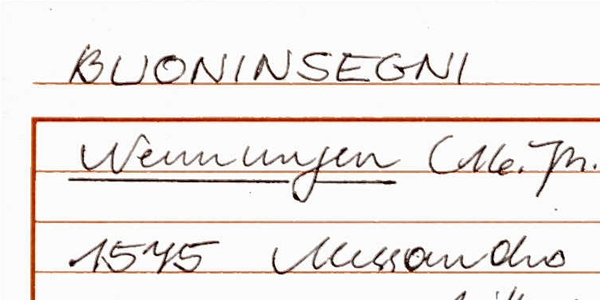 BUONINSEGNI
Nennungen
1575 Alessandro